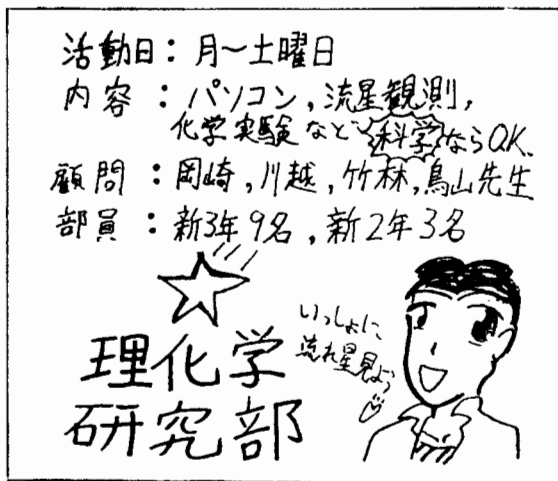 活動日：月〜土曜日
内容：パソコン，流星観測，
化学実験など科学ならOK．
顧問：岡崎，川越，竹林，鳥山先生
部員：新3年9名，新2年3名
いっしょに，
流れ星見よう
理化学
研究部